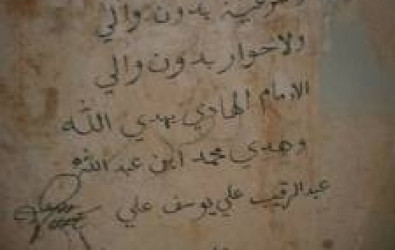 بدون والي
ولا حوار بدون والي
الامام الهادي يهدي الله
وهدي محمد ابن عبدالله
عبدالرقيب علي يوسف علي